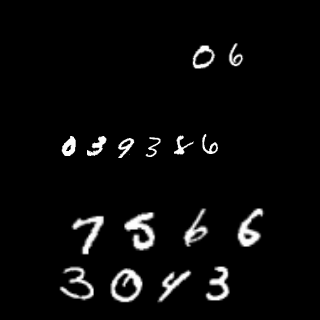 06
039386
7566
3043